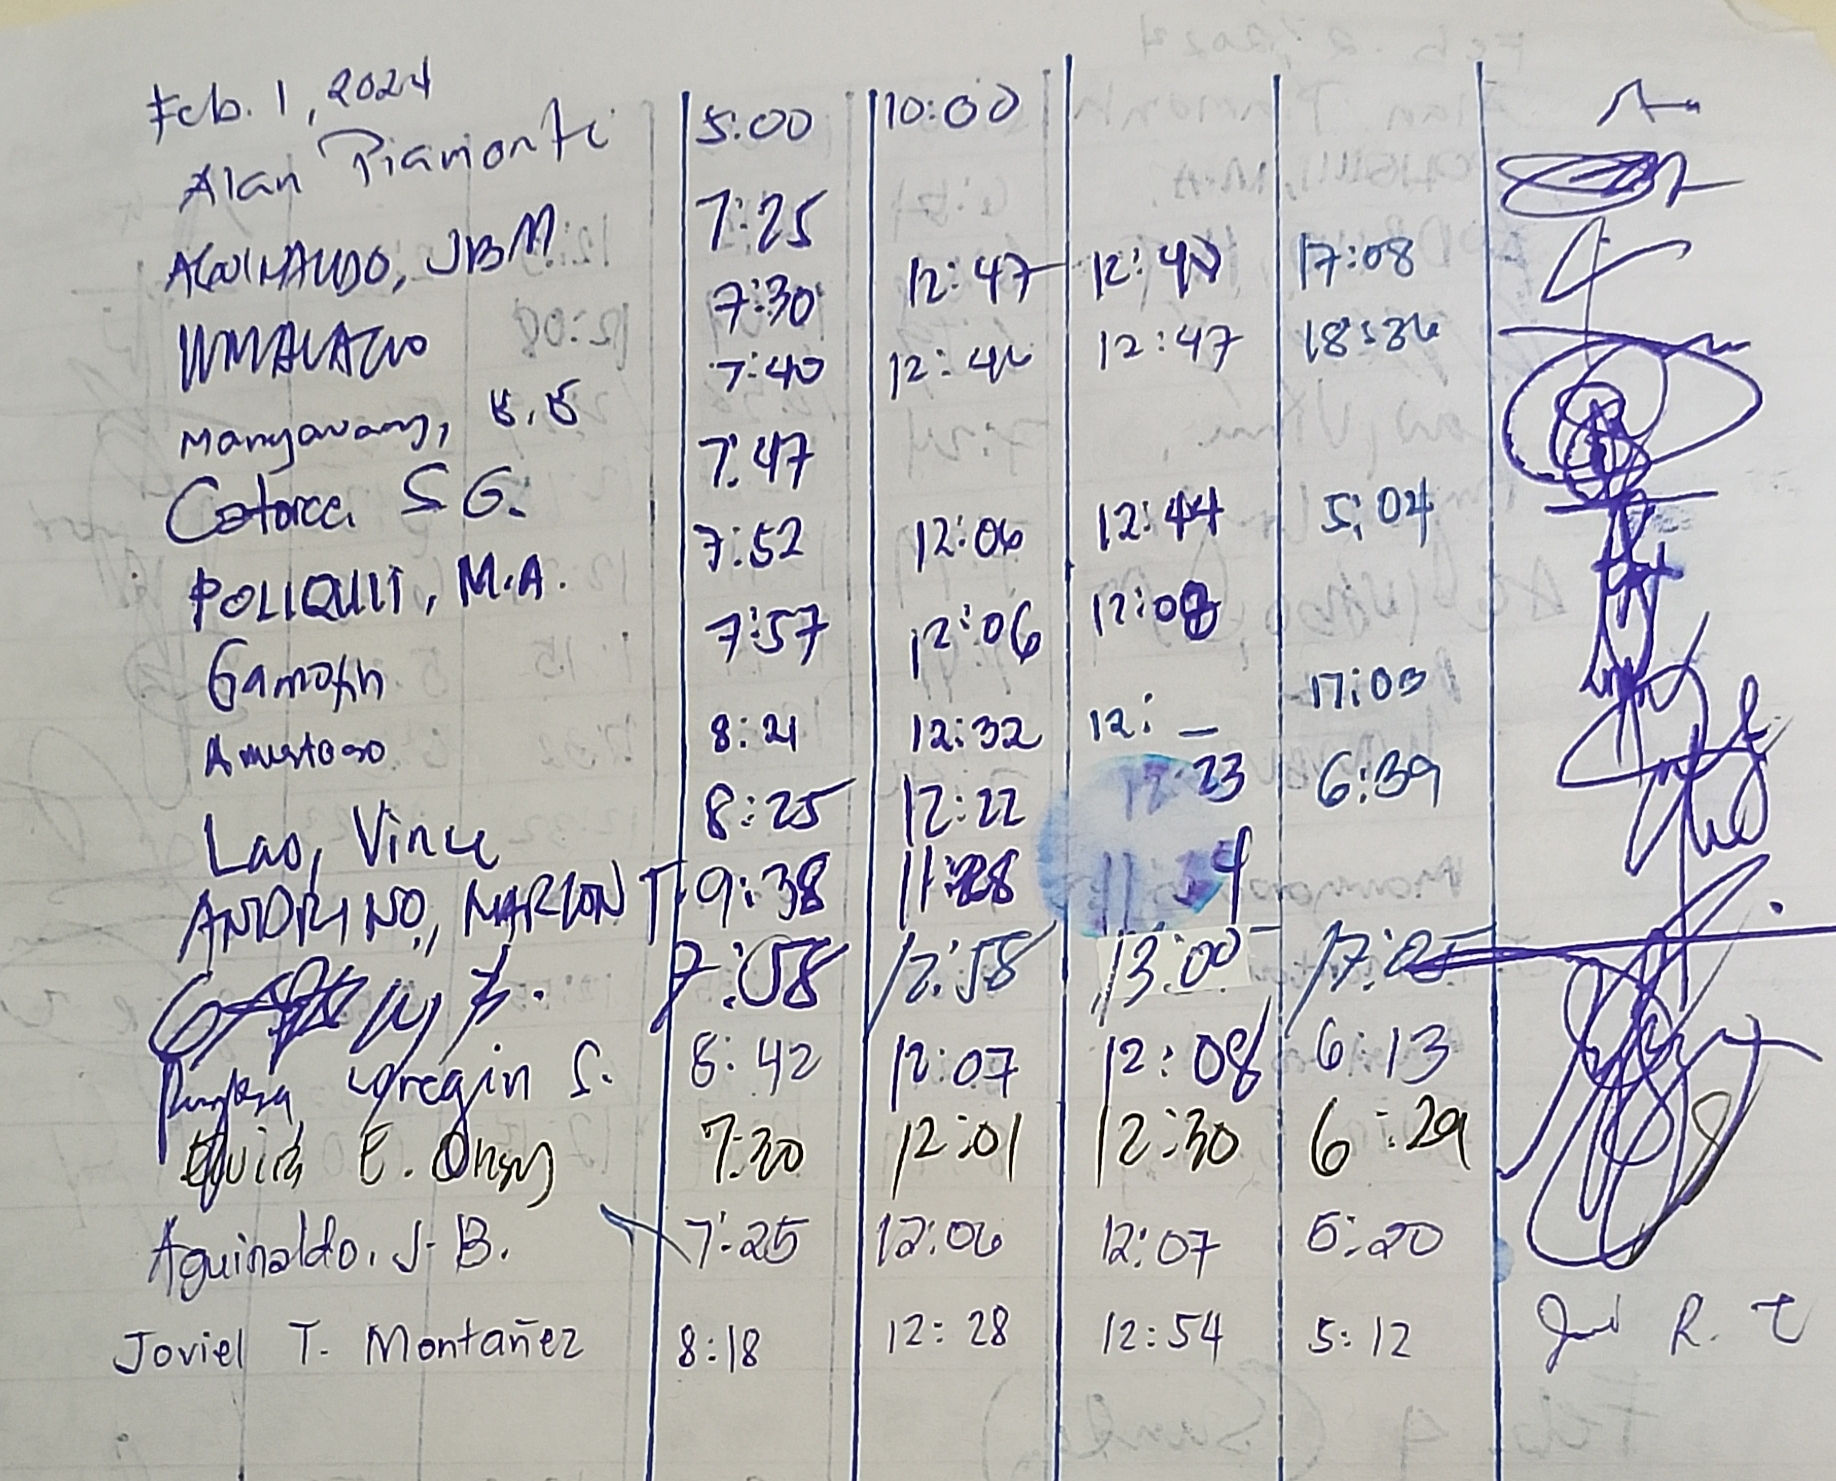 Feb. 1, 2024
Alan Piamonte 5:00 10:00
AGUINALDO, JBM 7:25
UMALI 7:30 12:47 12:42 17:08
Manyavang, 7:40 12:46 12:47 18:36
Catorce, S G. 7:47
POLIQUIT, M.A. 7:52 12:06 12:44 5:04
Gamotin 7:57 12:06 12:08
Amistoso 8:21 12:32 12: _ 17:03
Lao, Vince 8:25 12:22 12:23 6:39
ANDRINO, MARLON T. 9:38 11:28
7:58 12:58 13:00 17:05
S. 8:42 12:07 12:08 6:13
E. 7:30 12:01 12:30 6:29
Aguinaldo, J. B. 7:25 12:06 12:07 5:20
Joviel T. Montañez 8:18 12:28 12:54 5:12